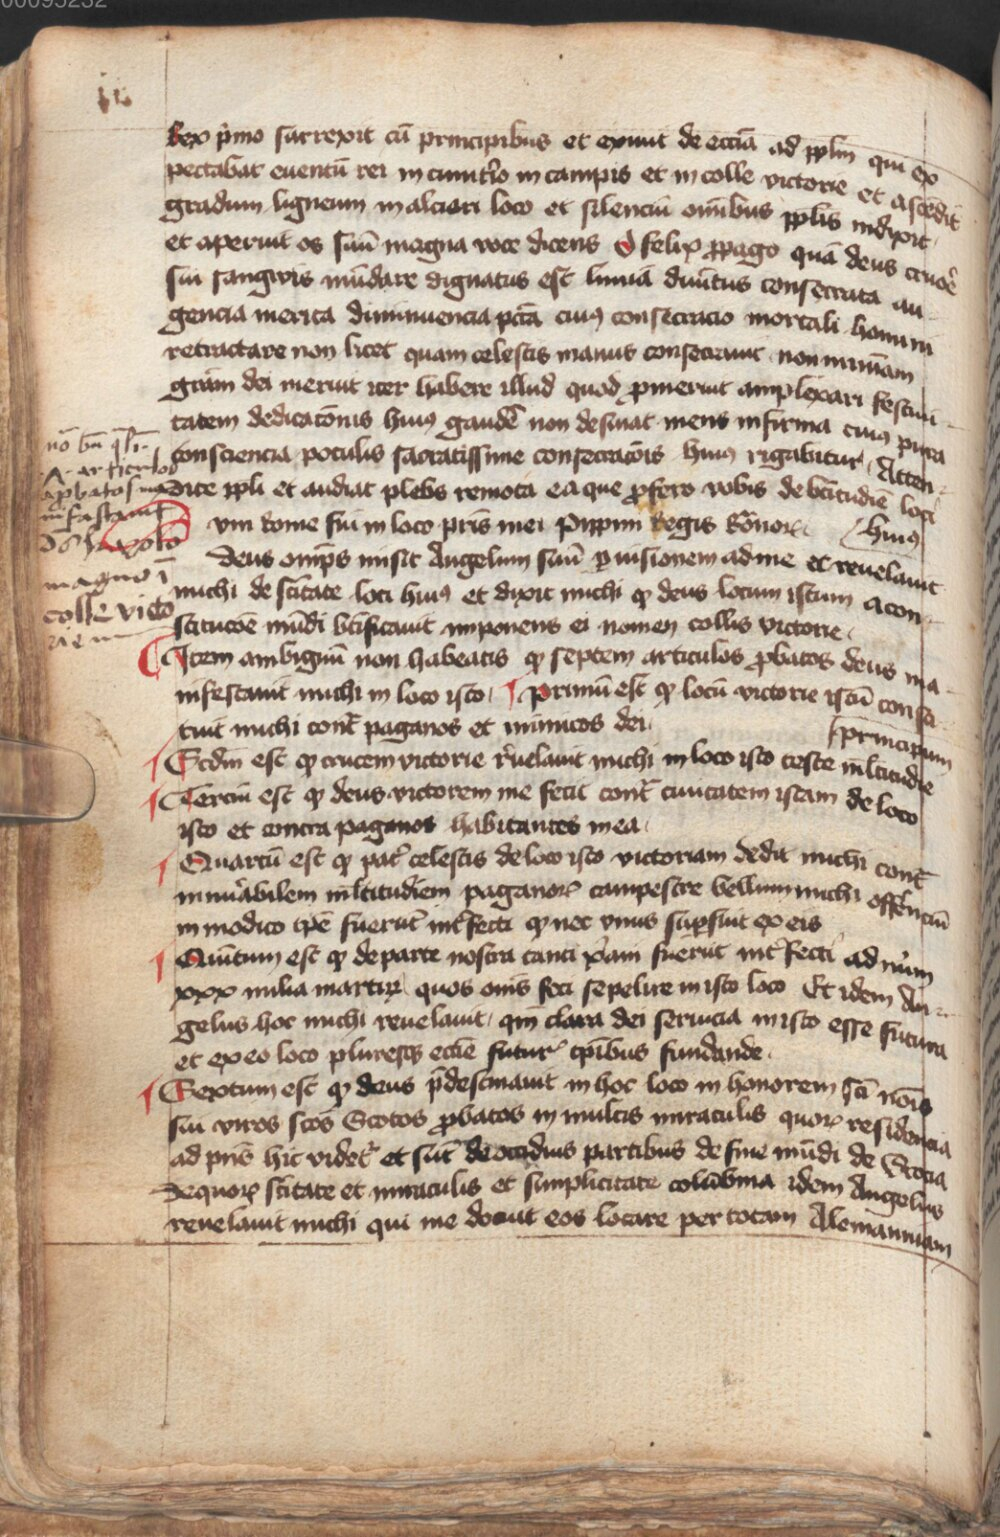 00095252
Rex p̄mo surrexit cū principibus et exiuit de eccīa ad pp̄lm qui ex
pectabāt euentū rei in cimit̄io in campis et in colle victorie et ascēdit
gradum ligneum in alciori loco et silenciū om̄ibus pp̄lis indixit
et aperuit os suū magna voce dicens O felix ꝓpago quā deus cruore
sui sangwis mūdare dignatus est diuitus consecrata au
gencia merita diminuencia pctā cuiꝰ consecracio mortali homini
retractare non licet quam celestis manus consecrauit non minimam
grām dei meruit iter habere illud quod ꝓmeruit amplexari festiui
tatem dedicacōnis huiꝰ gaudē non desinat mens infirma cuiꝰ pura
consciencia poculis sacratissime consecracōis huiꝰ rigabitur Atten
dite pp̄li et audiat plebs remota ea que ꝓfero vobis de btitudīe loci
huiꝰ
um Rome fui in loco pr̄is mei Pippini Regis Rōnorꝫ
Deus omp̄s misit Angelum suū ꝑ visionem ad me et reuelauit
michi de sc̄itate loci huiꝰ et dixit michi ꝙ deus locum istum a con
stitucōe mūdi btificauit imponens ei nomen collis victorie
Item ambiguū non habeatis ꝙ septem articulos ꝓbatos deus ma
nifestauit michi in loco isto ¶ primū est ꝙ locū victorie istū consti
tuit michi cont̄ paganos et inimicos dei
principum
¶ Scd̄m est ꝙ crucem victorie r̄uelauit michi in loco isto teste ml̄titudīe
¶ Terciū est ꝙ deus victorem me fecit cont̄ ciuitatem istam de loco
isto et contra paganos habitantes in ea
¶ Quartū est ꝙ pat̄ celestis de loco isto victoriam dedit michi cont̄
innūabilem ml̄titudiēm paganorꝫ campestre bellum michi offerenciū
in modico tpē fuerūt int̄fecti ꝙ nec vnus supfuit ex eis
¶ Quītum est ꝙ de parte nostra tanti xp̄iani fuerūt int̄fecti ad nūm
xxx milia martirꝫ quos om̄s feci sepelire in isto loco Et idem An
gelus hoc michi reuelauit qm̄ clara dei seruicia in isto esse futura
et ex eo loco pluresqꝫ eccīe futurꝭ tpībus fundande
¶ Sextum est ꝙ deus p̄destinauit in hoc loco in honorem sc̄i nōis
sui viros sc̄os Scotos ꝓbatos in multis miraculis quorꝫ residencia
ad pn̄s hic videt̄ et sūt de occiduis partibus de fine mūdi de Scocia
de quorꝫ sc̄itate et miraculis et simplicitate colūbina idem Angelus
reuelauit michi qui me docuit eos locare per totam Alemanniam
nō bn̄
articulos
magno ī
colle victo
rie